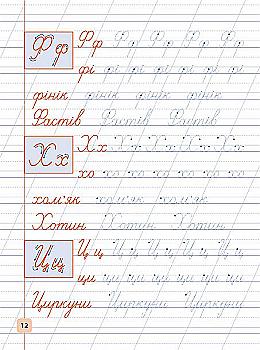 Ф ф Ф ф Ф ф Ф ф Ф ф Ф ф
фі фі фі фі фі фі фі
фінік фінік фінік фінік
Фастів Фастів Фастів
Х х Х х Х х Х х Х х Х х Х х
хо хо хо хо хо хо хо
хом'як хом'як хом'як
Хотин Хотин Хотин
Ц ц Ц ц Ц ц Ц ц Ц ц Ц ц Ц ц
ци ци ци ци ци ци ци
Циркуни Циркуни Циркуни
12